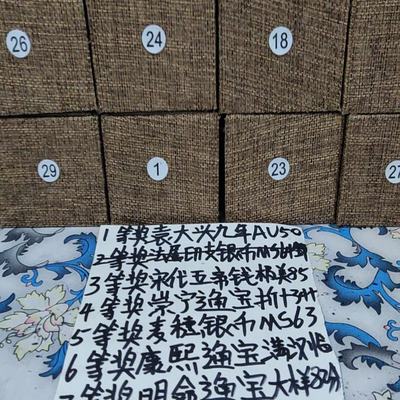 26 24 18
29 1 23 27
1等奖袁大头九年AU50
2等奖法属印支银币
3等奖宋代五帝钱极美85
4等奖崇宁通宝折十
5等奖麦穗银币MS63
6等奖康熙通宝满汉
7等奖明命通宝大样82分